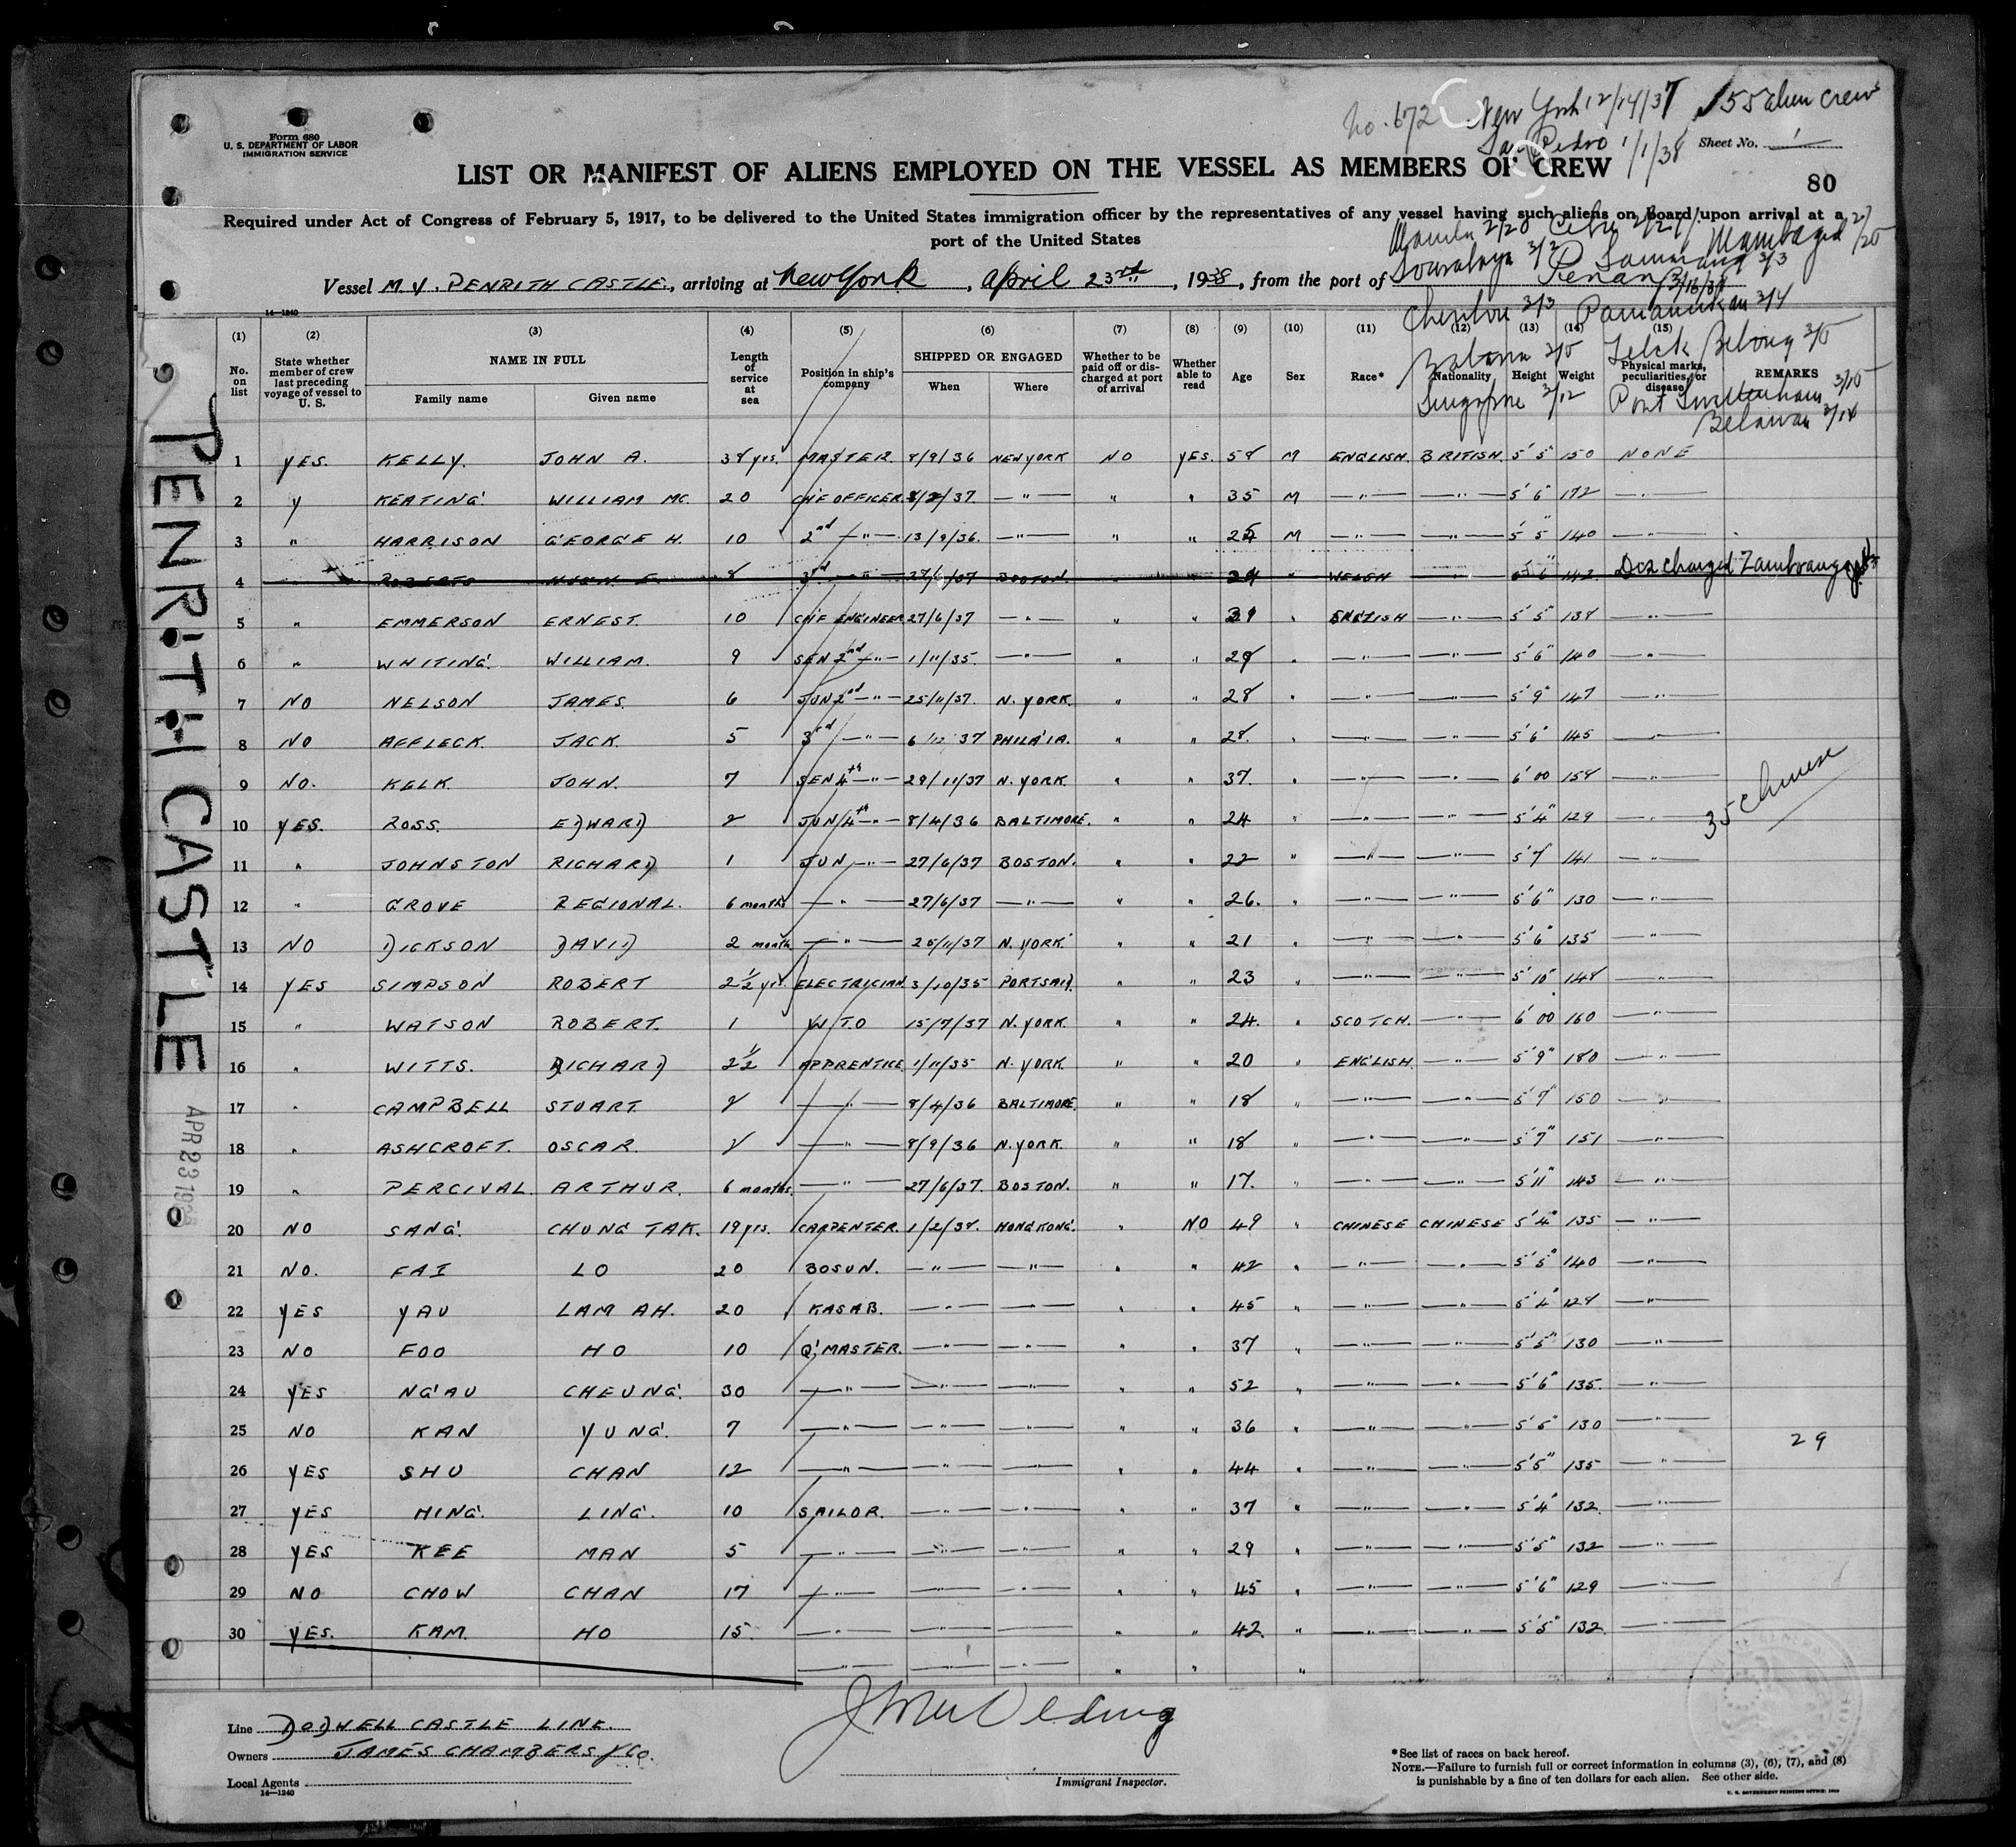 No. 672 New York 12/14/37 55 alien crew
San Pedro 1/1/38 Sheet No. 1
Form 680
U. S. DEPARTMENT OF LABOR
IMMIGRATION SERVICE
LIST OR MANIFEST OF ALIENS EMPLOYED ON THE VESSEL AS MEMBERS OF CREW
80
Required under Act of Congress of February 5, 1917, to be delivered to the United States immigration officer by the representatives of any vessel having such aliens on board upon arrival at a
port of the United States
Manila 2/20 Cebu
Sourabaya 3/2
Vessel M.V. PENRITH CASTLE, arriving at New York, April 23rd, 1938, from the port of Penang 3/16/38
Cheribon 3/3 Pamanukan 3/4
Batavia 3/5 Telok Betong 3/5
Singapore 3/12 Port Swettenham 3/15
Belawan 3/18
14—1240
(1) (2) (3) (4) (5) (6) (7) (8) (9) (10) (11) (12) (13) (14) (15)
No. on list State whether member of crew last preceding voyage of vessel to U. S. NAME IN FULL Family name Given name Length of service at sea Position in ship's company SHIPPED OR ENGAGED When Where Whether to be paid off or discharged at port of arrival Whether able to read Age Sex Race* Nationality Height Weight Physical marks, peculiarities, or disease REMARKS
1 YES. KELLY. JOHN A. 38 yrs. MASTER 8/9/36 NEW YORK NO YES. 58 M ENGLISH. BRITISH. 5' 5" 150 NONE
2 Y KEATING. WILLIAM MC. 20 CH'F OFFICER 8/2/37. —"— " " 35 M —"— —"— 5' 6" 172 —"—
3 " HARRISON GEORGE H. 10 2nd —"— 13/9/36. —"— " " M —"— —"— 5' 5" 140 —"—
4 ROBERTS HUGH E. 8 3rd —"— 27/6/37 BOSTON. 24 " WELSH —"— 142 Discharged Zamboanga
5 " EMMERSON ERNEST. 10 CH'F ENGINEER 27/6/37 —"— " " 39 " ENGLISH —"— 5' 5" 138 —"—
6 " WHITING. WILLIAM. 9 SEN 2nd —"— 1/11/35. —"— " " 29 " —"— —"— 5' 6" 140 —"—
7 NO NELSON JAMES. 6 JUN 2nd —"— 25/11/37. N. YORK. " " 28 " —"— —"— 5' 9" 147 —"—
8 NO AFFLECK. JACK. 5 3rd —"— 6/12/37 PHILA'IA. " " 28. " —"— —"— 5' 6" 145 —"—
9 NO. KELK. JOHN. 7 SEN 4th —"— 29/11/37 N. YORK. " " 37. " —"— —"— 6' 00 158 —"—
10 YES. ROSS. EDWARD 2 JUN 4th —"— 8/4/36 BALTIMORE. " " 24 " —"— —"— 5' 4" 129 —"— 35 Chinese
11 " JOHNSTON RICHARD 1 JUN —"— 27/6/37 BOSTON. " " 22 " —"— —"— 5' 7" 141 —"—
12 " GROVE REGIONAL. 6 months —"— 27/6/37 —"— " " 26. " —"— —"— 5' 6" 130 —"—
13 NO DICKSON DAVID 2 month —"— 25/11/37 N. YORK " " 21 " —"— —"— 5' 6" 135 —"—
14 YES SIMPSON ROBERT 2½ yrs. ELECTRICIAN. 3/10/35 PORTSAID. " " 23 " —"— —"— 5' 10" 148 —"—
15 " WATSON ROBERT. 1 W.T.O 15/7/37 N. YORK. " " 24. " SCOTCH. —"— 6' 00 160 —"—
16 " WITTS. RICHARD 2½ APPRENTICE. 1/11/35 N. YORK. " " 20 " ENGLISH. —"— 5' 9" 180 —"—
17 " CAMPBELL STUART. 2 —"— 8/4/36 BALTIMORE. " " 18 " —"— —"— 5' 7" 150 —"—
18 " ASHCROFT. OSCAR. 2 —"— 8/9/36 N. YORK. " " 18 " —"— —"— 5' 7" 151 —"—
19 " PERCIVAL. ARTHUR. 6 months. —"— 27/6/37. BOSTON. " " 17. " —"— —"— 5' 11" 143 —"—
20 NO SANG. CHUNG TAK. 19 yrs. CARPENTER. 1/2/38. HONG KONG. " NO 49 " CHINESE CHINESE 5' 4" 135 —"—
21 NO. FAI LO 20 BOSUN. —"— —"— " " 42 " —"— —"— 5' 5" 140 —"—
22 YES YAU LAM AH. 20 KASAB. —"— —"— " " 45 " —"— —"— 5' 4" 128 —"—
23 NO FOO HO 10 Q'MASTER. —"— —"— " " 37 " —"— —"— 5' 5" 130 —"—
24 YES NGAU CHEUNG. 30 —"— —"— —"— " " 52 " —"— —"— 5' 6" 135. —"—
25 NO KAN YUNG. 7 —"— —"— —"— " " 36 " —"— —"— 5' 6" 130 —"— 29
26 YES SHU CHAN 12 —"— —"— —"— " " 44 " —"— —"— 5' 5" 135 —"—
27 YES HING. LING. 10 SAILOR. —"— —"— " " 37 " —"— —"— 5' 4" 132. —"—
28 YES KEE MAN 5 —"— —"— —"— " " 29 " —"— —"— 5' 5" 132 —"—
29 NO CHOW CHAN 17 —"— —"— —"— " " 45 " —"— —"— 5' 6" 129 —"—
30 YES. KAM. HO 15. —"— —"— —"— " " 42. " —"— —"— 5' 5" 132. —"—
PENRITH CASTLE
APR 23 1938
Line DODWELL CASTLE LINE.
Owners JAMES CHAMBERS & Co.
Local Agents
14—1240
Immigrant Inspector.
*See list of races on back hereof.
NOTE.—Failure to furnish full or correct information in columns (3), (6), (7), and (8)
is punishable by a fine of ten dollars for each alien. See other side.
U. S. GOVERNMENT PRINTING OFFICE: 1935